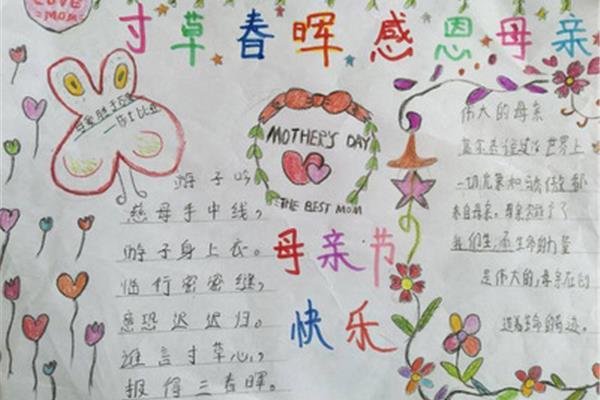 LOVE
MOM
寸草春晖 感恩母亲
MOTHER'S DAY
THE BEST MOM
游子吟
慈母手中线,
游子身上衣。
临行密密缝,
意恐迟迟归。
谁言寸草心,
报得三春晖。
母亲节
快乐
伟大的母亲
世界上
一切光荣和骄傲都
来自母亲。
我们生命的力量
是伟大的,母亲在
生命的奇迹。